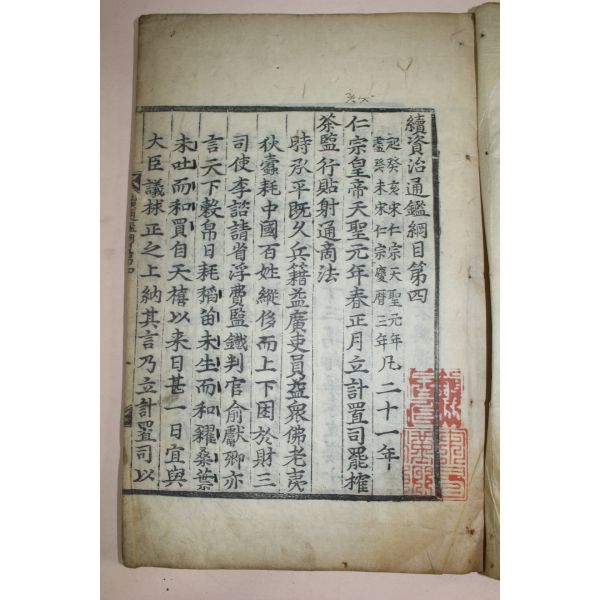 續資治通鑑綱目第四
起癸亥宋仁宗天聖元年
盡癸未宋仁宗慶曆三年
凡二十一年
仁宗皇帝天聖元年春正月立計置司罷榷
茶監行貼射通商法
時承平既久兵籍益廣吏員益衆佛老夷
狄蠹耗中國百姓縱侈而上下困於財三
司使李諮請省浮費監鐵判官俞獻卿亦
言天下穀帛日耗稻苗未生而和糴桑葉
未吐而和買自天禧以来日甚一日宜與
大臣議捄正之上納其言乃立計置司以